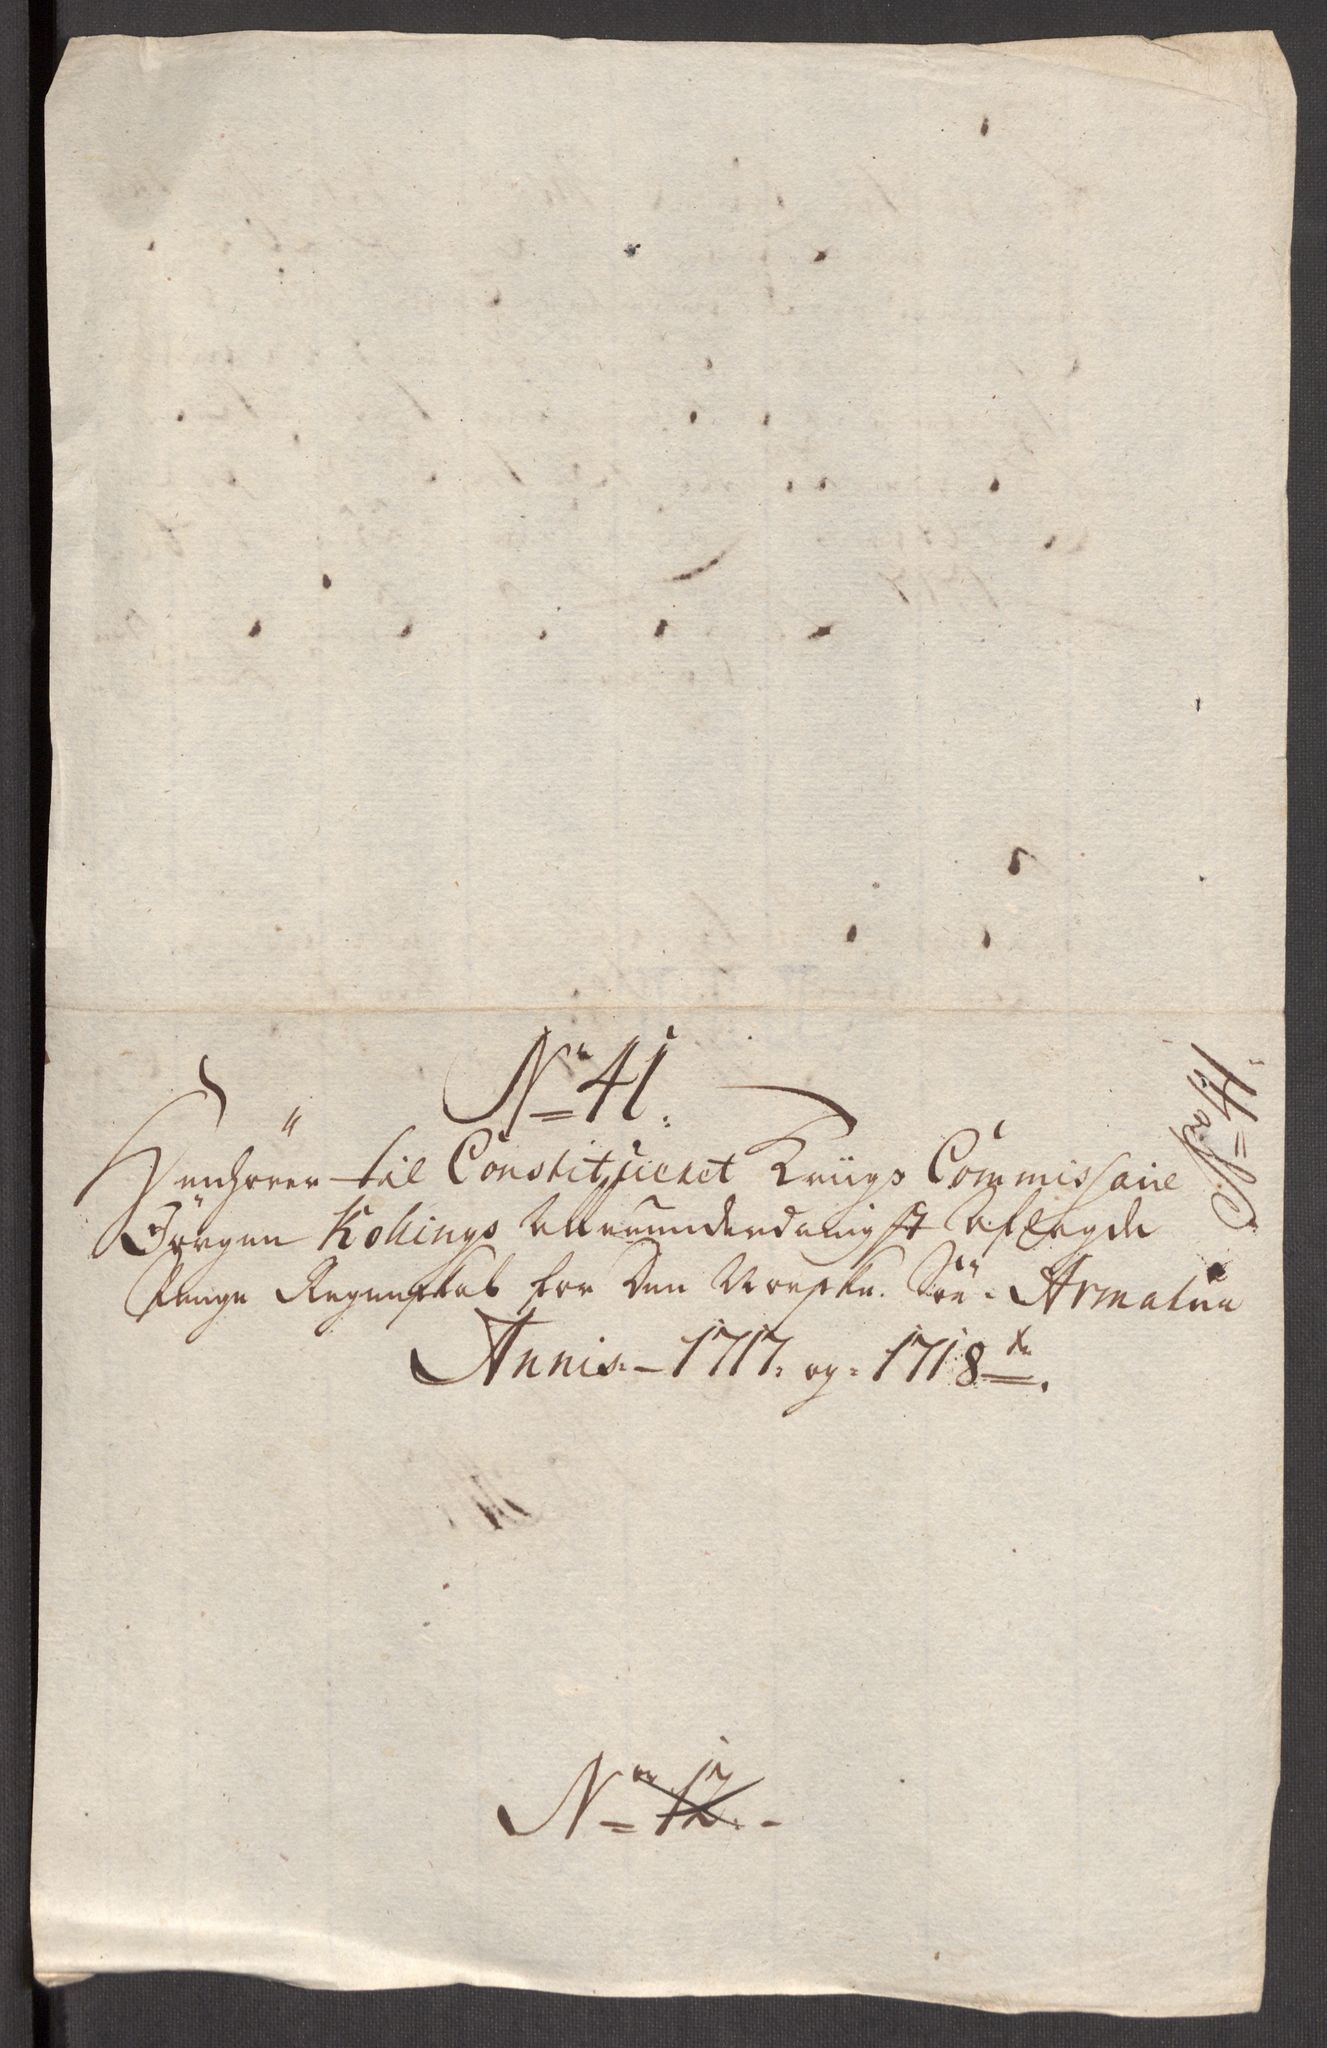 No 41.
Henhører til Constitueret Kriigs Commissarie
Jörgen Kollings allerunderdanigst aflagde
Penge Regenskab for den Norske Söe-Armatur
Annis 1717 og 1718
No 12.
No 41.